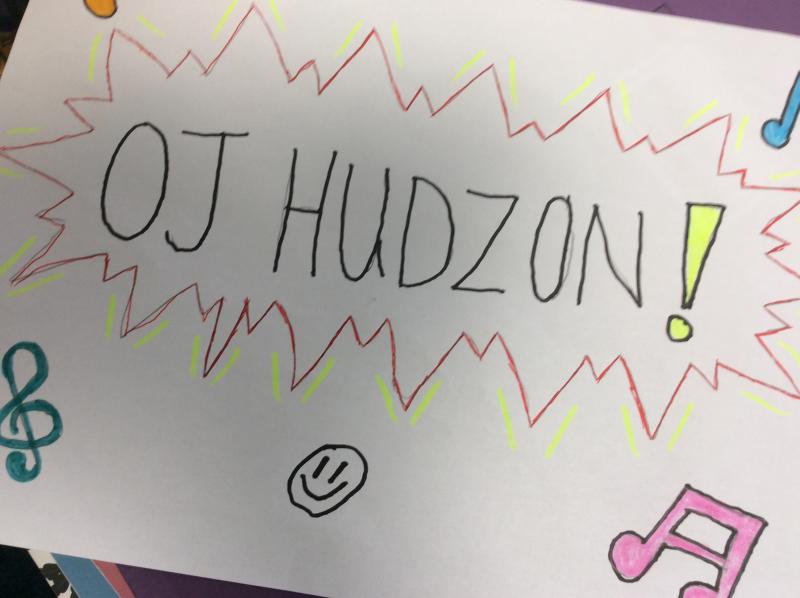 OJ HUDZON!